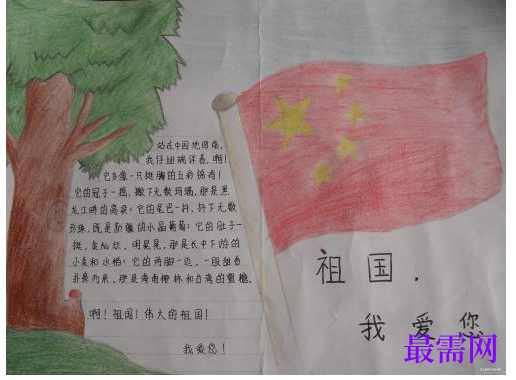 站在中国地图前,
我仔细端详着,啊!
它多像一只挺胸的五彩锦鸡!
它的冠子一摇,撒下无数玛瑙,那是黑
龙江畔的高粱;它的尾巴一抖,抖下无数
珍珠,既是新疆的水晶葡萄;它的肚子一
挺,金灿灿,明晃晃,那是长中下游的
小麦和水稻;它的两脚一迈,一股甜香
扑鼻而来,那是海南椰林和台湾的蜜糖。
啊!祖国!伟大的祖国!
我爱您!
祖国.
我爱您
最需网